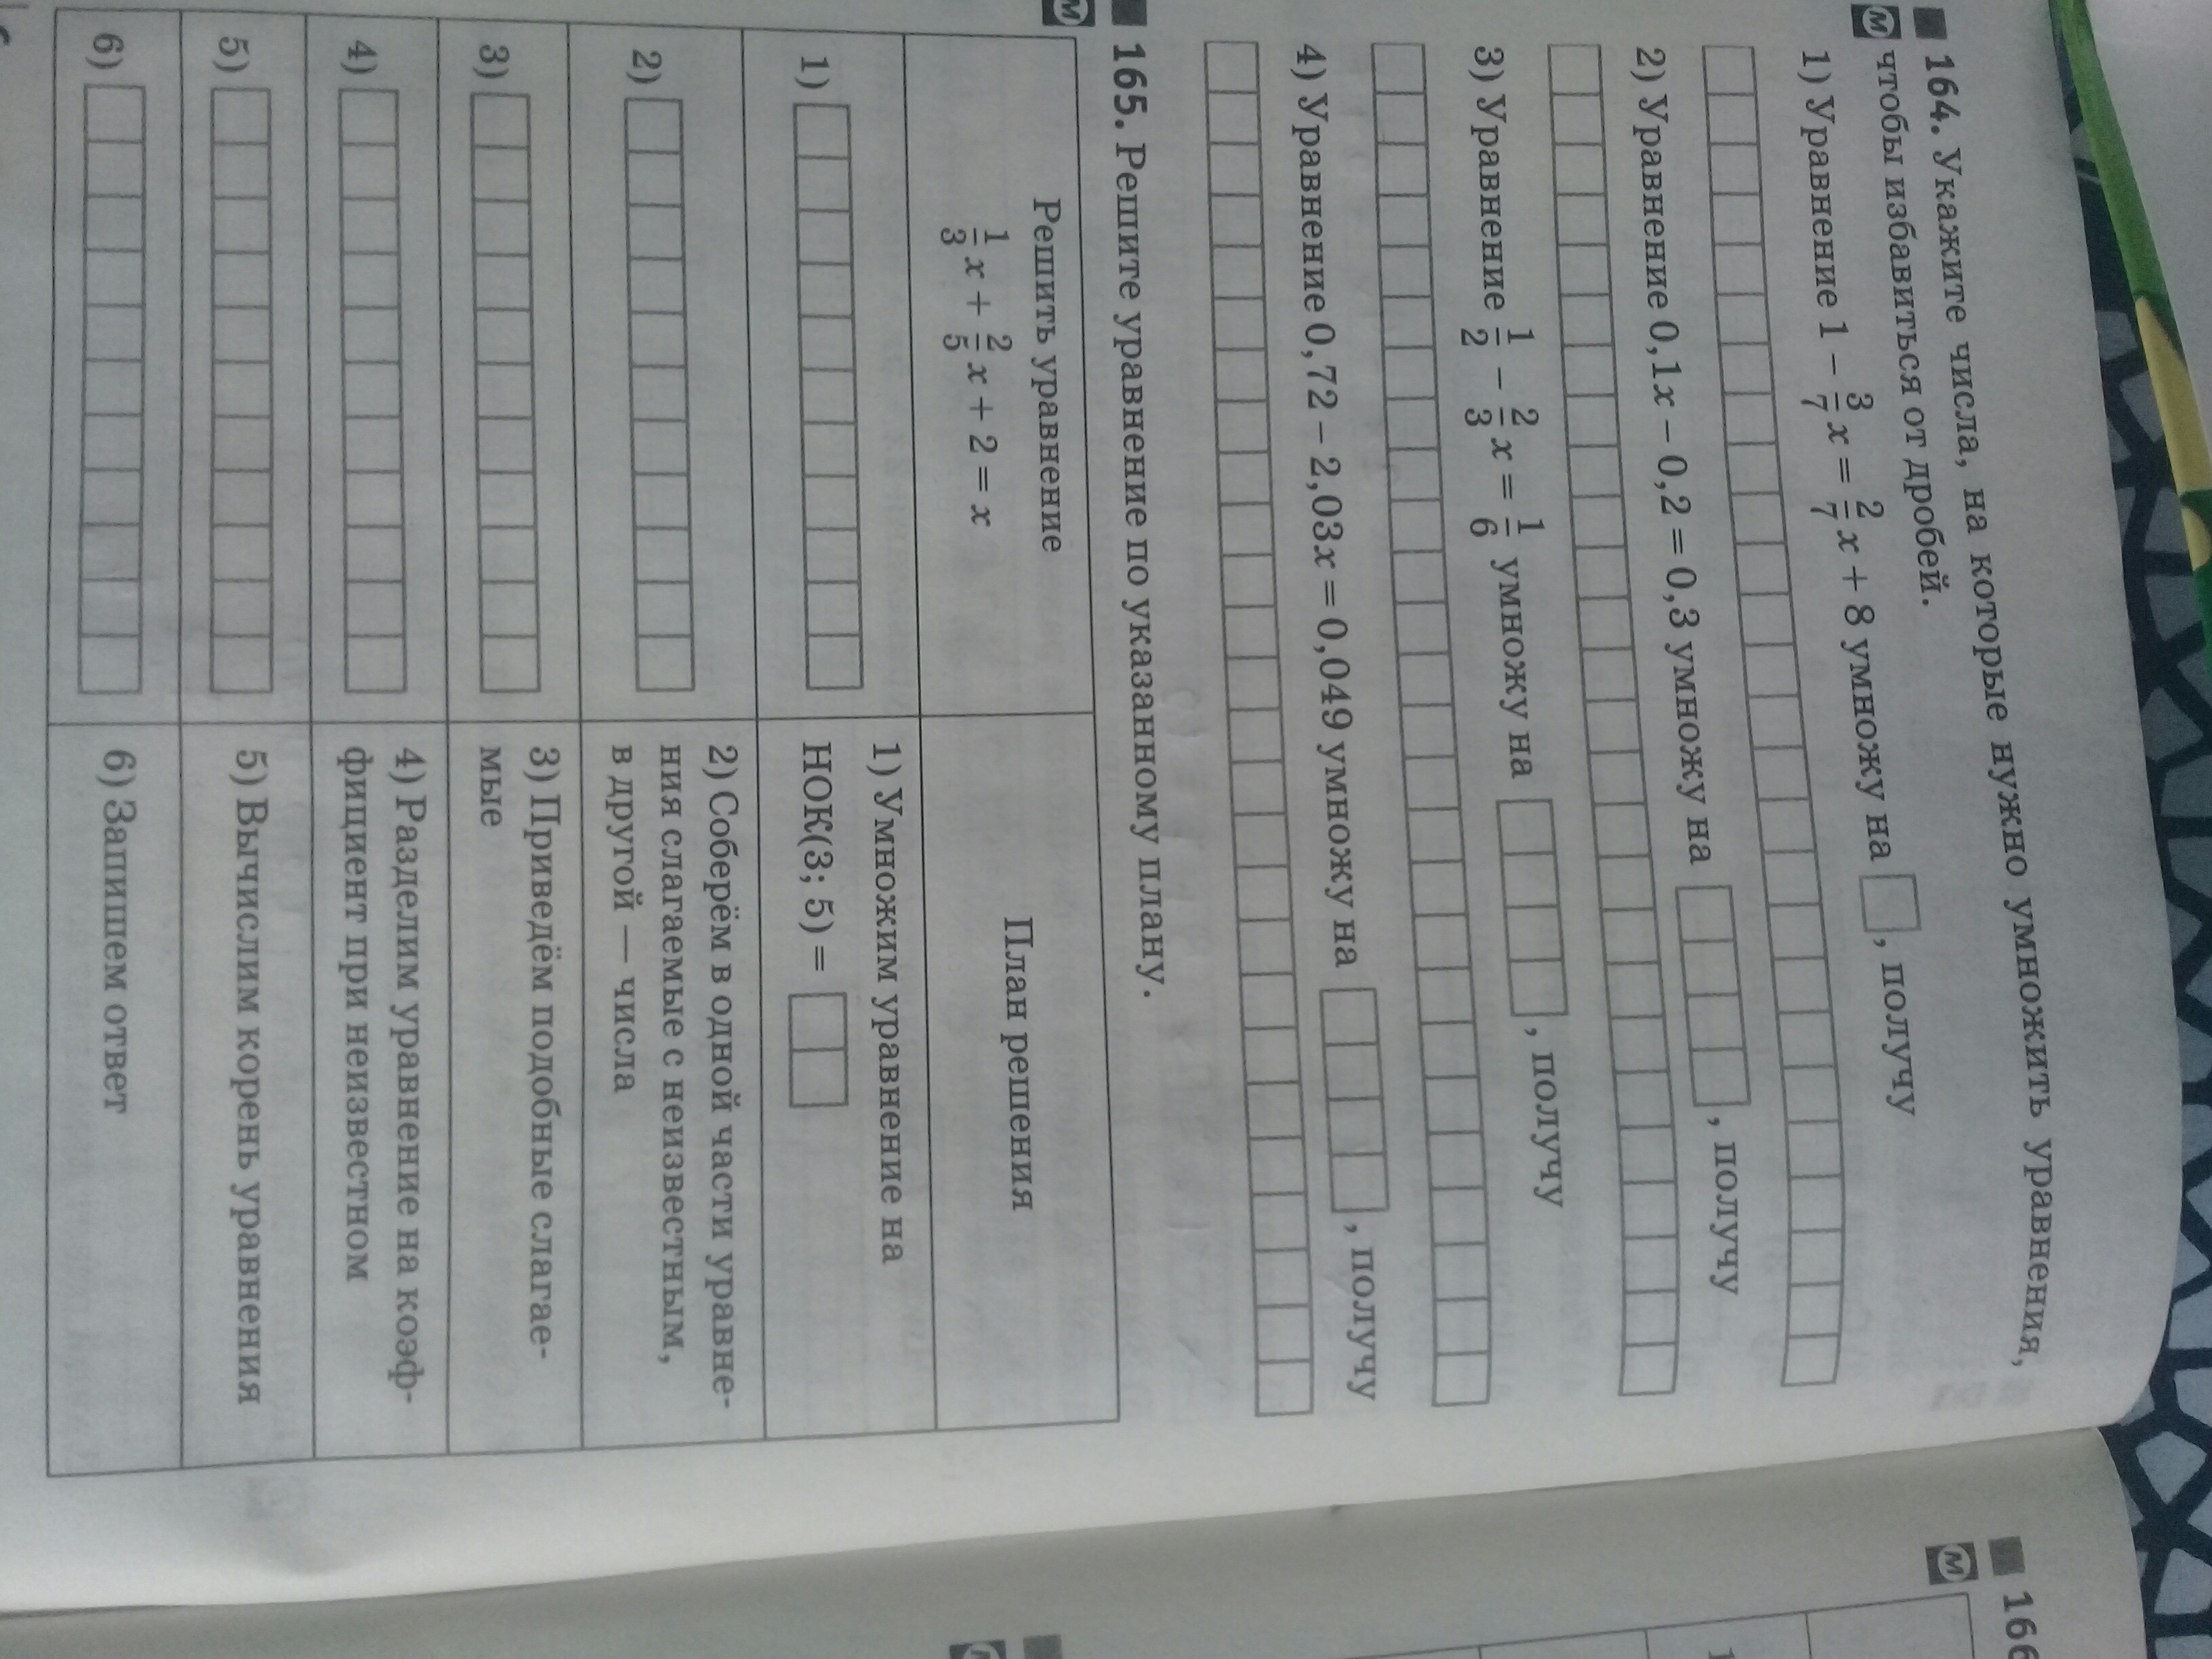 164. Укажите числа, на которые нужно умножить уравнения,
М чтобы избавиться от дробей.
1) Уравнение 1 − 3/7 x = 2/7 x + 8 умножу на , получу
2) Уравнение 0,1x − 0,2 = 0,3 умножу на , получу
3) Уравнение 1/2 − 2/3 x = 1/6 умножу на , получу
4) Уравнение 0,72 − 2,03x = 0,049 умножу на , получу
165. Решите уравнение по указанному плану.
М
Решить уравнение
1/3 x + 2/5 x + 2 = x
План решения
1)
1) Умножим уравнение на
НОК(3; 5) =
2)
2) Соберём в одной части уравне-
ния слагаемые с неизвестным,
в другой — числа
3)
3) Приведём подобные слагае-
мые
4)
4) Разделим уравнение на коэф-
фициент при неизвестном
5)
5) Вычислим корень уравнения
6)
6) Запишем ответ
166
М